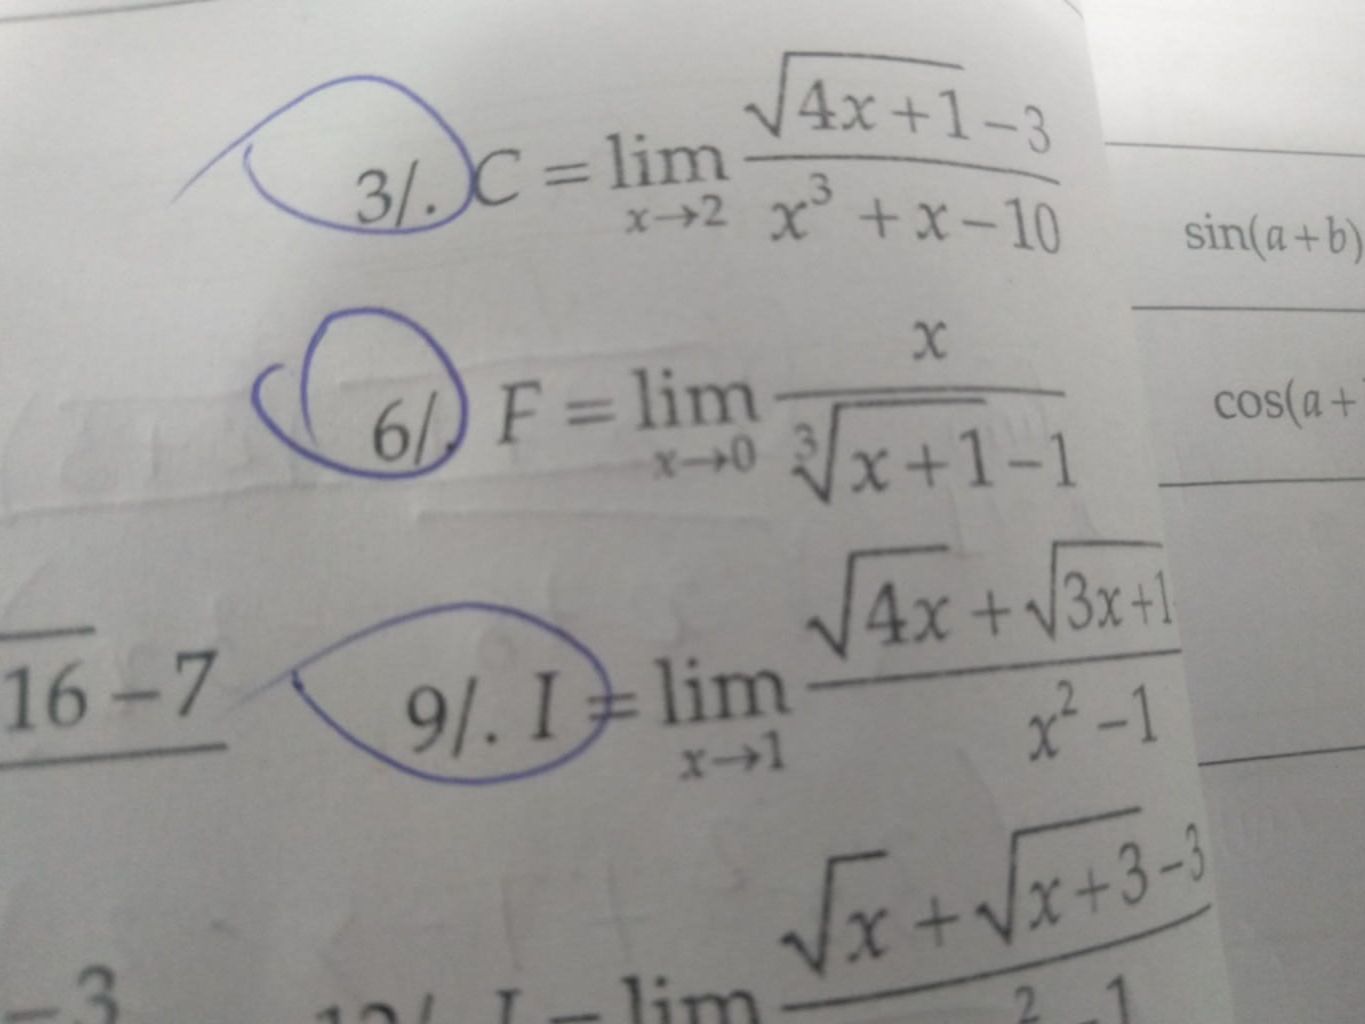 3/. C = lim x→2 (√(4x+1) −3)/(x³ + x − 10)
sin(a+b)
6/. F = lim x→0 x/(∛(x+1) −1)
cos(a+
16 − 7
9/. I = lim x→1 (√(4x) + √(3x+1)/(x² − 1)
√x + √(x+3) −3
−3
lim
2 1